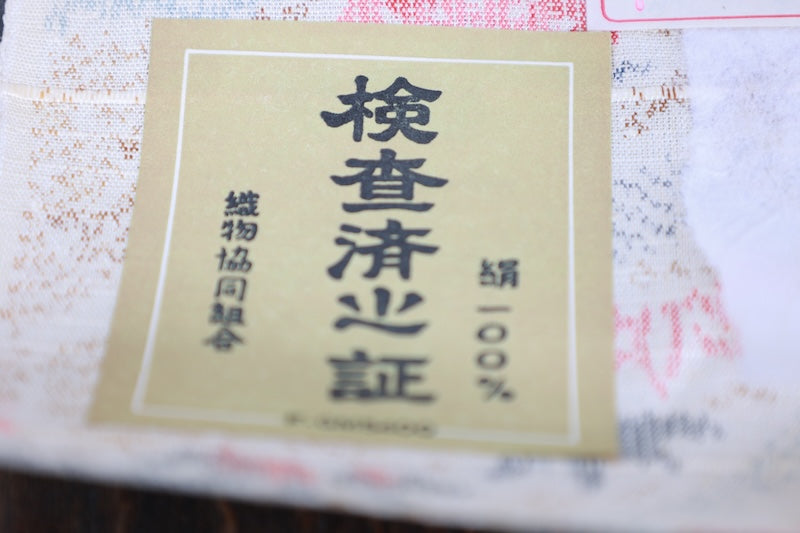 絹一〇〇%
検査済之証
織物協同組合